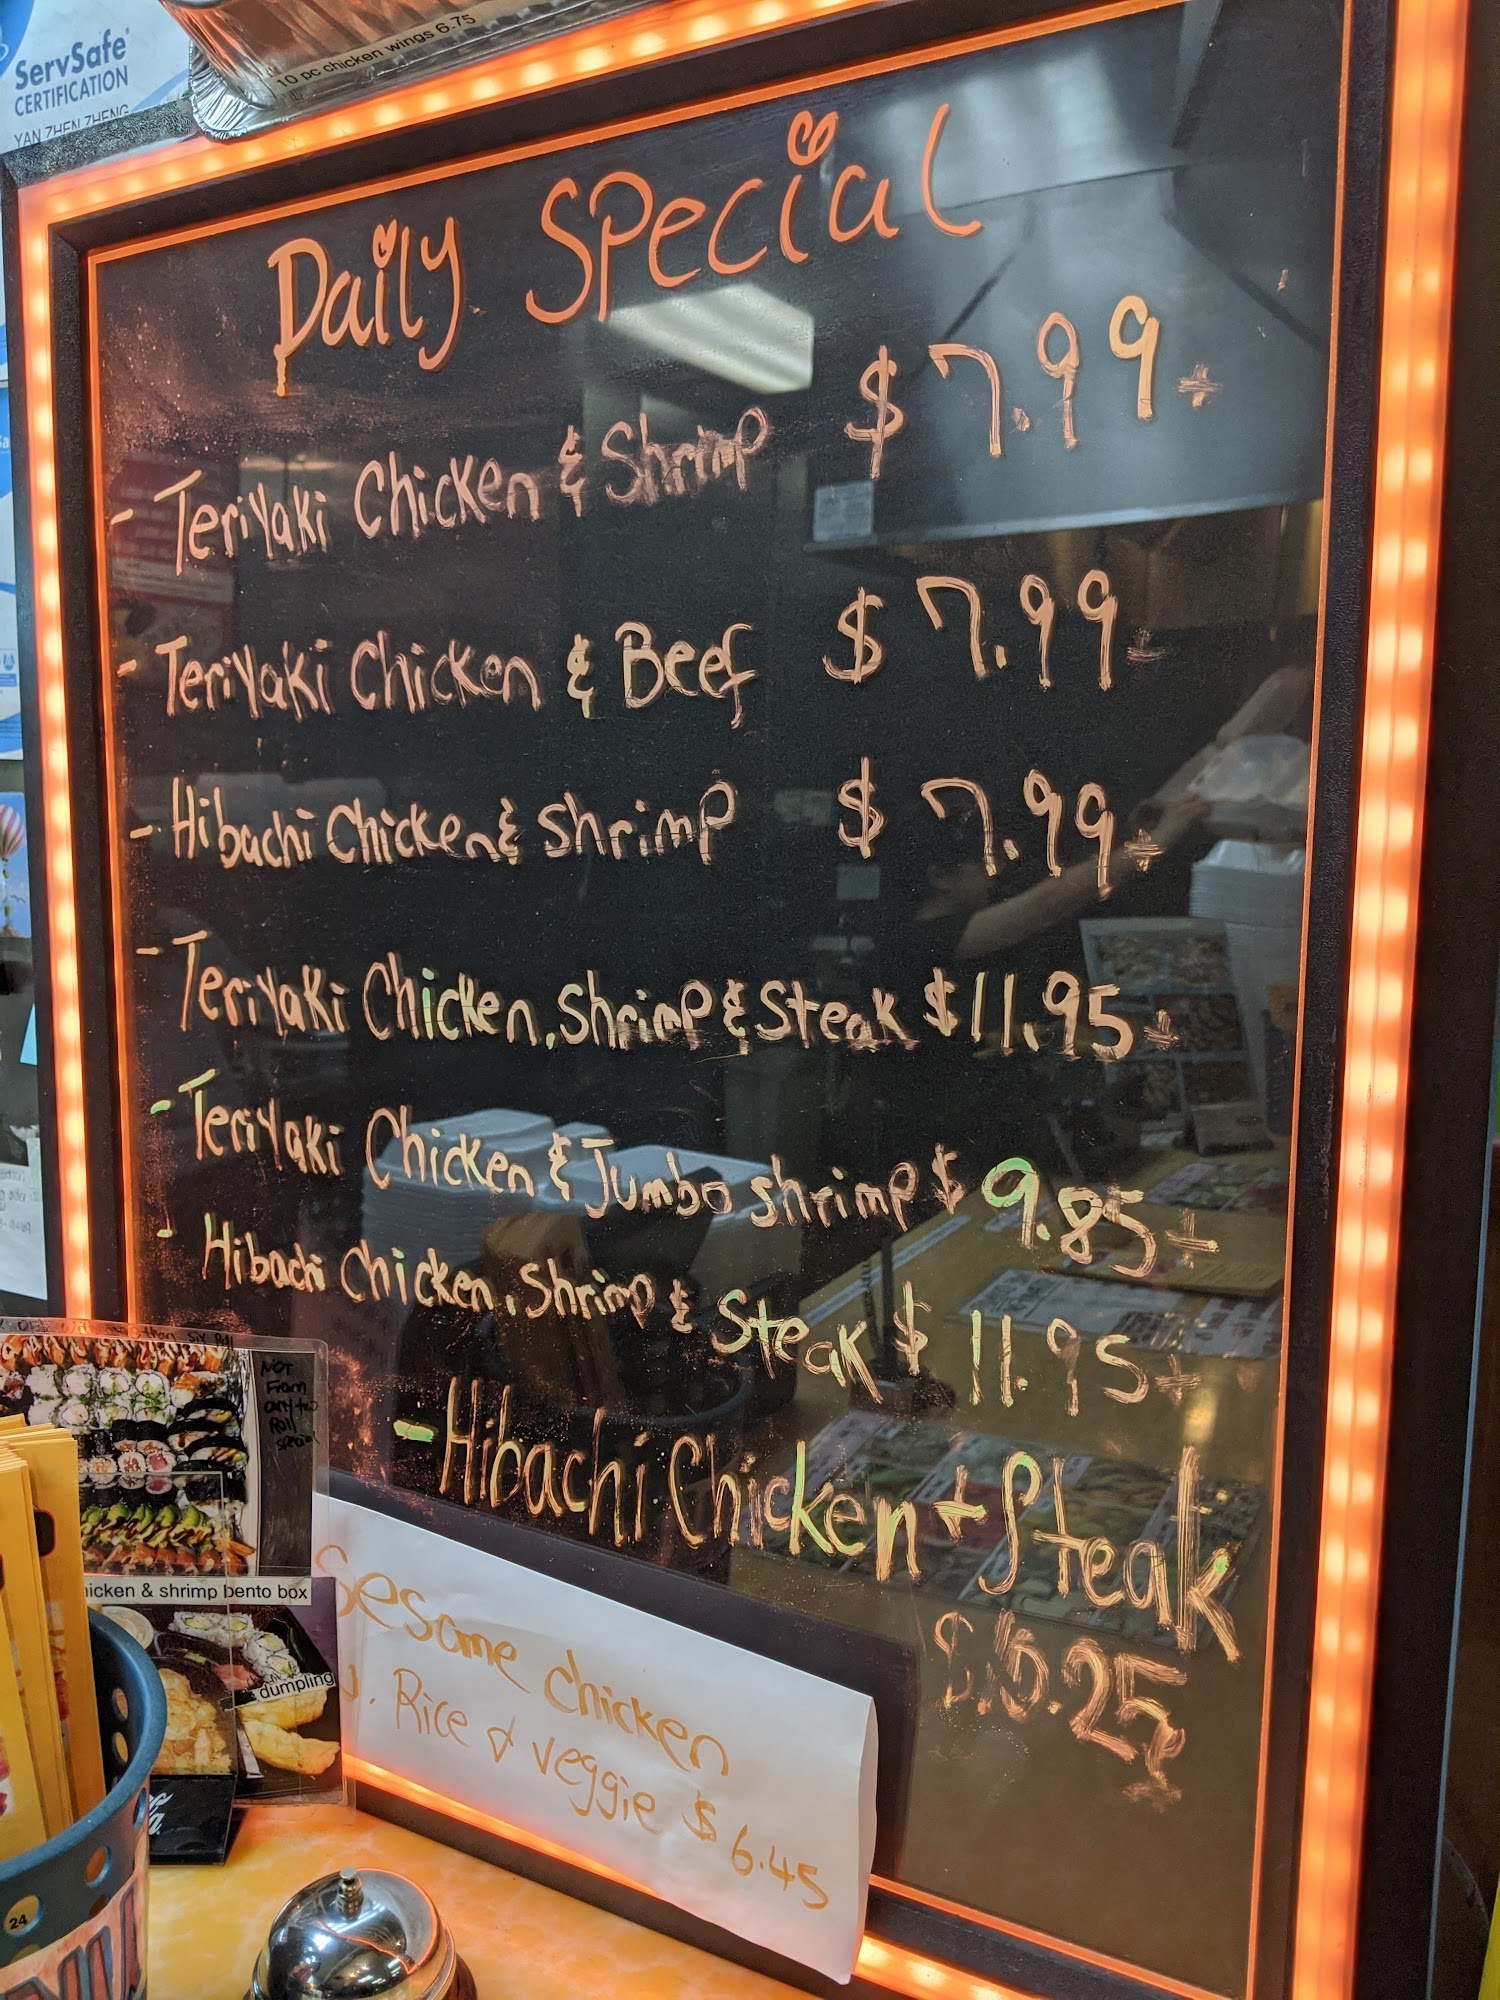 ServSafe
CERTIFICATION
YAN ZHEN ZHENG
10 pc chicken wings 6.75
Daily Special
- Teriyaki Chicken & Shrimp $7.99+
- Teriyaki Chicken & Beef $7.99+
- Hibachi Chicken & Shrimp $7.99+
- Teriyaki Chicken, Shrimp & Steak $11.95+
- Teriyaki Chicken & Jumbo shrimp $9.85+
- Hibachi Chicken, Shrimp & Steak $11.95+
- Hibachi Chicken + Steak
Sesame chicken
Rice & veggie $6.45
NOT
From
any two
Roll
special
hicken & shrimp bento box
dumpling
24